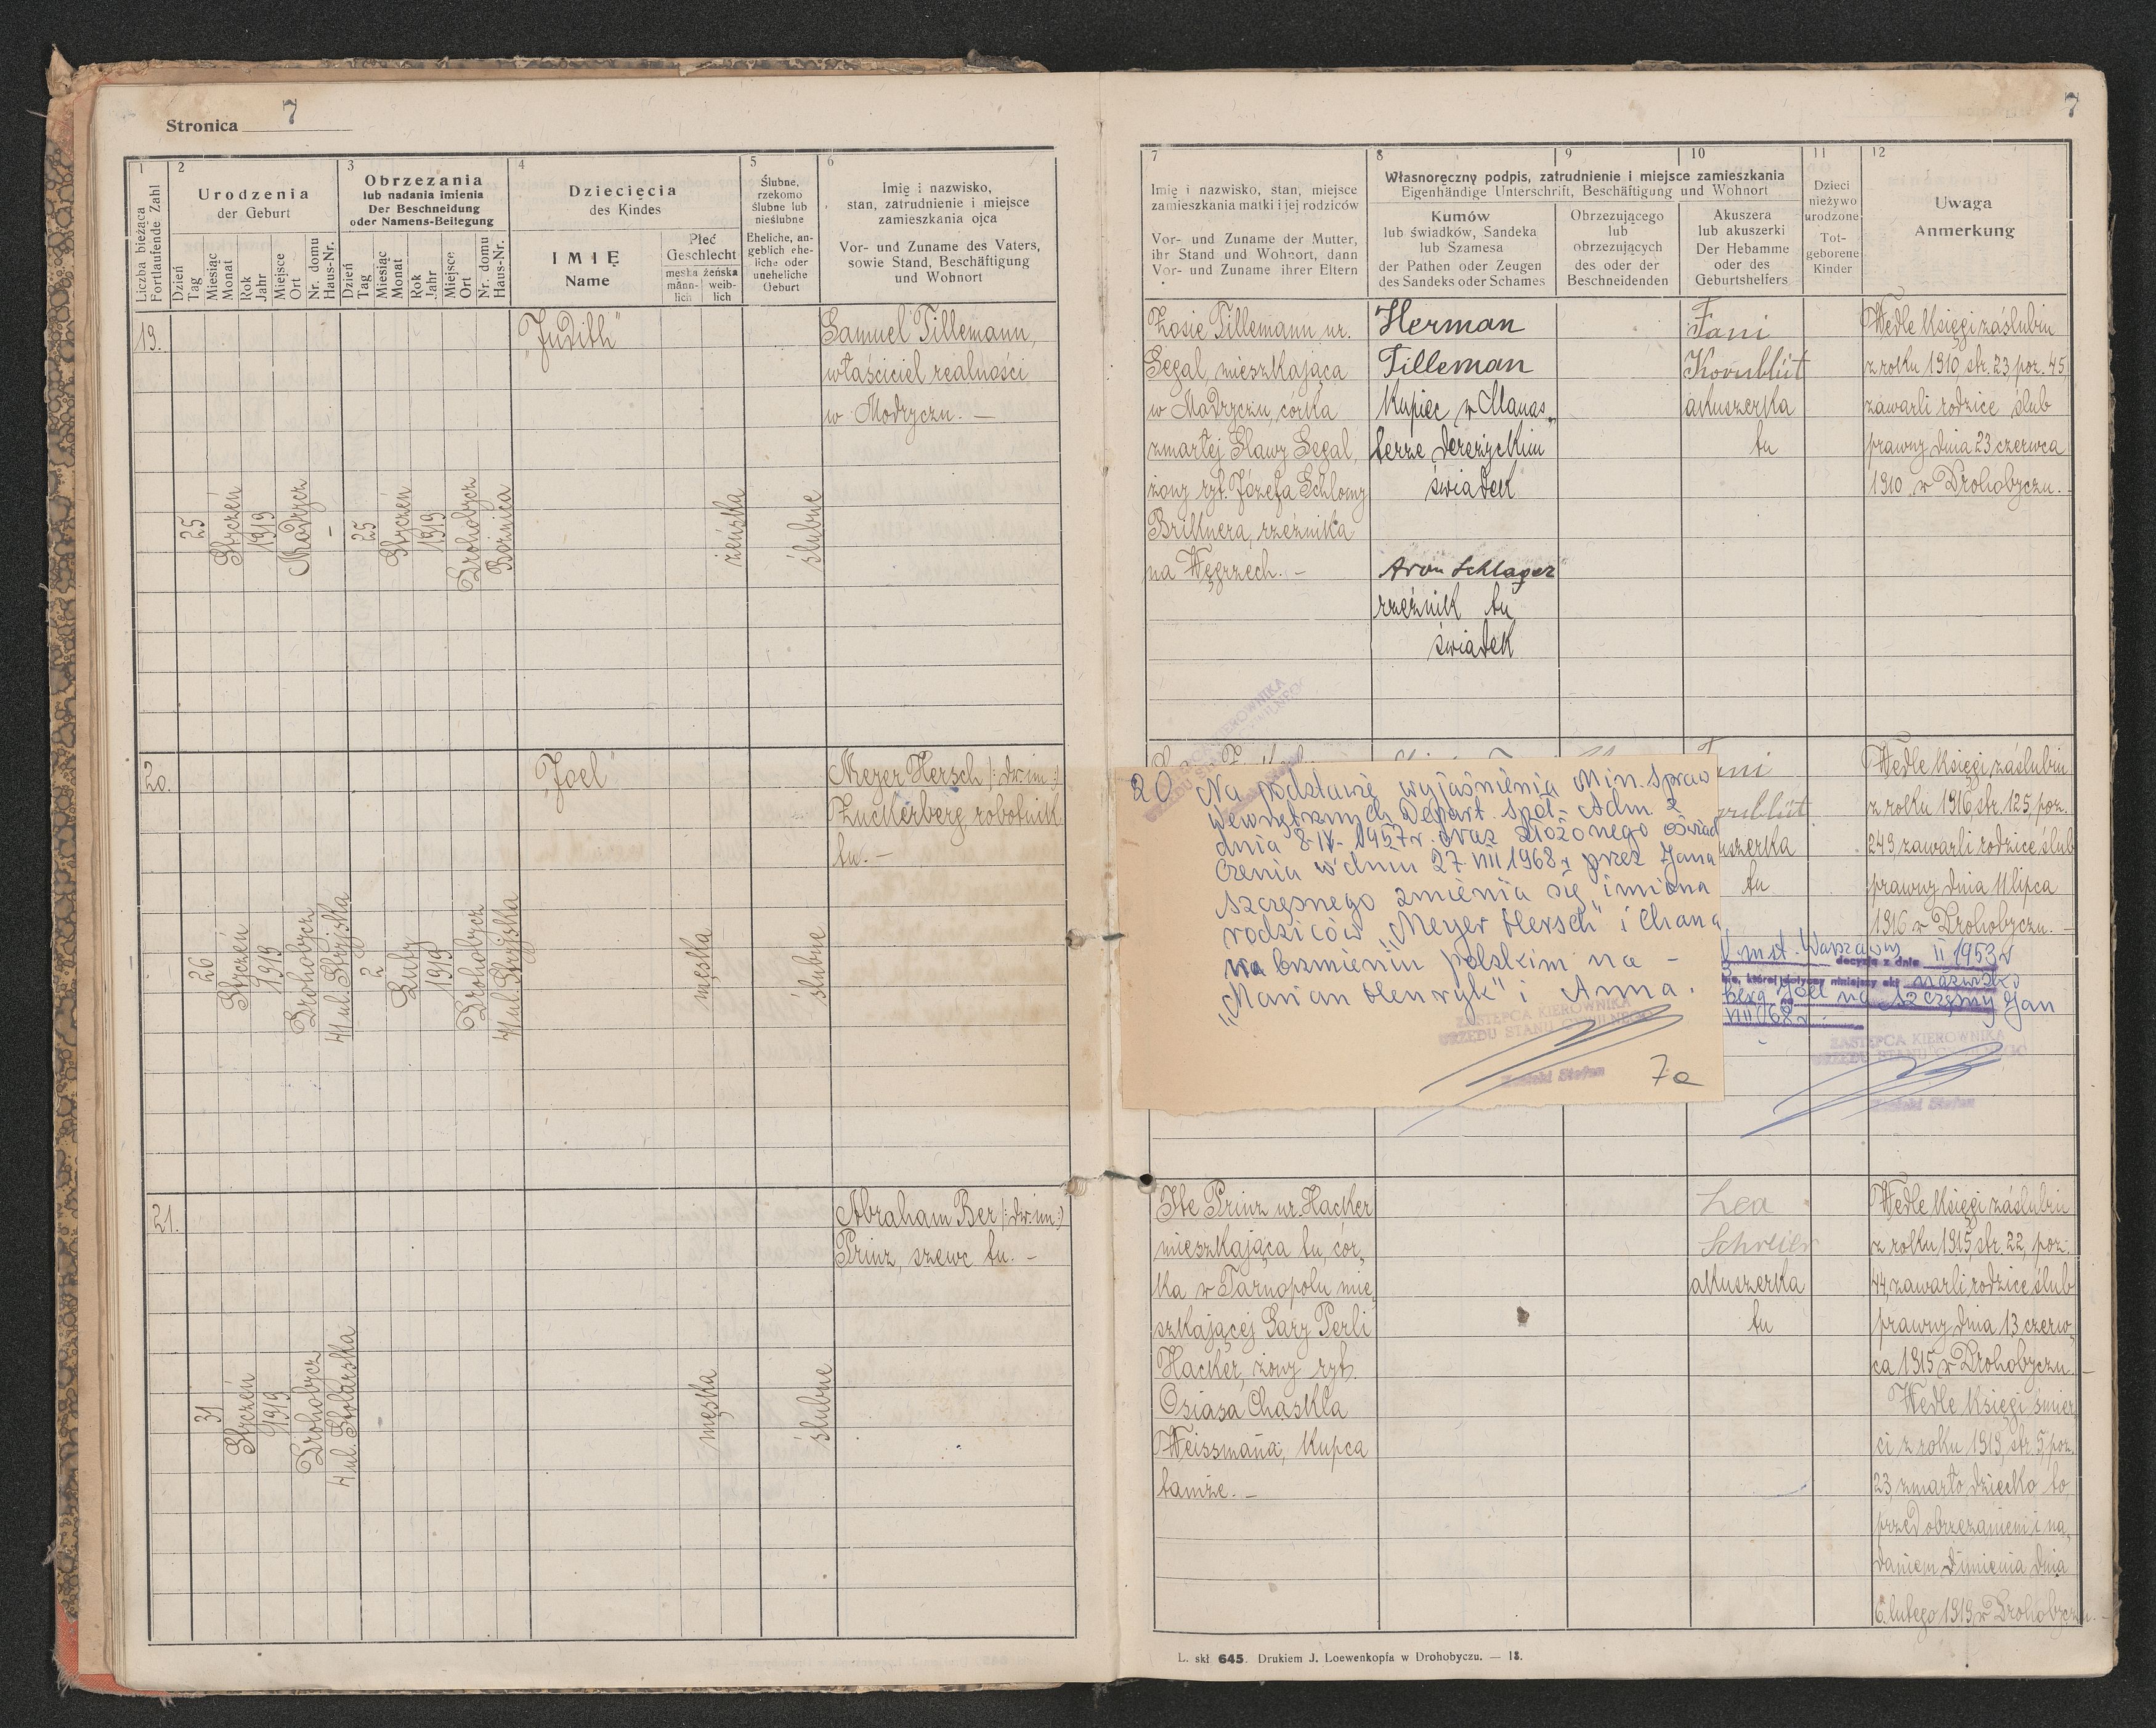 Stronica 7
7
1
2
3
4
5
6
Liczba bieżąca
Fortlaufende Zahl
Urodzenia
der Geburt
Dzień
Tag
Miesiąc
Monat
Rok
Jahr
Miejsce
Ort
Nr. domu
Haus-Nr.
Obrzezania
lub nadania imienia
Der Beschneidung
oder Namens-Beilegung
Dzień
Tag
Miesiąc
Monat
Rok
Jahr
Miejsce
Ort
Nr. domu
Haus-Nr.
Dziecięcia
des Kindes
IMIĘ
Name
Płeć
Geschlecht
męska żeńska
männ- weib-
lich lich
Ślubne,
rzekomo
ślubne lub
nieślubne
Eheliche, an-
geblich ehe-
liche oder
uneheliche
Geburt
Imię i nazwisko,
stan, zatrudnienie i miejsce
zamieszkania ojca
Vor- und Zuname des Vaters,
sowie Stand, Beschäftigung
und Wohnort
19.
25
Styczeń
1919
Modrycz
-
25
Styczeń
1919
Drohobycz
Bożnica
„Judith"
żeńska
ślubne
Samuel Tillemann,
właściciel realności
w Modryczu. —
20.
26
Styczeń
1919
Drohobycz
41 ul. Stryjska
2
Luty
1919
Drohobycz
41 ul. Stryjska
„Joel"
męska
ślubne
Meyer Hersch (: dw. im :)
Zuckerberg, robotnik
tu. —
21.
31
Styczeń
1919
Drohobycz
4 ul. Stolarska
męska
ślubne
Abraham Ber (: dw. im :)
Prinz, szewc tu. —
7
8
9
10
11
12
Imię i nazwisko, stan, miejsce
zamieszkania matki i jej rodziców
Vor- und Zuname der Mutter,
ihr Stand und Wohnort, dann
Vor- und Zuname ihrer Eltern
Własnoręczny podpis, zatrudnienie i miejsce zamieszkania
Eigenhändige Unterschrift, Beschäftigung und Wohnort
Kumów
lub świadków, Sandeka
lub Szamesa
der Pathen oder Zeugen
des Sandeks oder Schames
Obrzezującego
lub
obrzezujących
des oder der
Beschneidenden
Akuszera
lub akuszerki
Der Hebamme
oder des
Geburtshelfers
Dzieci
nieżywo
urodzone
Tot-
geborene
Kinder
Uwaga
Anmerkung
Zosie Tillemann ur.
Segal, mieszkająca
w Modryczu, córka
zmarłej Sławy Segal,
żony ryt. Józefa Schlomy
Briknera, rzeźnika
na Węgrzech. —
Herman
Tilleman
Kupiec w Manas„
terze dereżyckim
świadek
Aron Schlager
rzeźnik tu
świadek
Fani
Kornblüt
akuszerka
tu
Wedle księgi zaślubin
z roku 1910 str. 23, poz. 45,
zawarli rodzice ślub
prawny dnia 23 czerwca
1910 w Drohobyczu. —
20 Na podstawie wyjaśnienia Min. Spraw
Wewnętrznych Depart. Społ.-Adm. z
dnia 8.IV.1957r. oraz złożonego oświad
czenia w dniu 27.VIII 1968 r przez Jana
Szczęsnego zmienia się imiona
rodziców „Meyer Hersch" i Chana
na brzmieniu polskim na —
„Marian Henryk" i Anna.
ZASTĘPCA KIEROWNIKA
URZĘDU STANU CYWILNEGO
Stefan
7a
Wedle księgi zaślubin
z roku 1916 str. 125, poz.
249 zawarli rodzice ślub
prawny dnia 11 lipca
1916 w Drohobyczu. —
uszerka
tu
m.st. Warszawy
decyzją z dnia II 1953 r
której dotyczy niniejszy akt nazwisko
berg Joel na Szczęsny Jan
VIII 68 r.
ZASTĘPCA KIEROWNIKA
URZĘDU STANU CYWILNEGO
Stefan
Ite Prinz ur. Hacker
mieszkająca tu, cór„
ka w Tarnopolu mie„
szkającej Sary Perli
Hacker, żony ryt.
Osiasa Chaskla
Weissmana, kupca
tamże. —
Lea
Schreier
akuszerka
tu
Wedle księgi zaślubin
z roku 1915 str. 22, poz.
44, zawarli rodzice ślub
prawny dnia 13 czerw„
ca 1915 w Drohobyczu. —
Wedle księgi śmier„
ci z roku 1919, str. 5, poz.
23, zmarło dziecko to
przed obrzezaniem i na„
daniem imienia dnia
6. lutego 1919 w Drohobyczu. —
L. skł. 645. Drukiem J. Loewenkopfa w Drohobyczu. — 18.